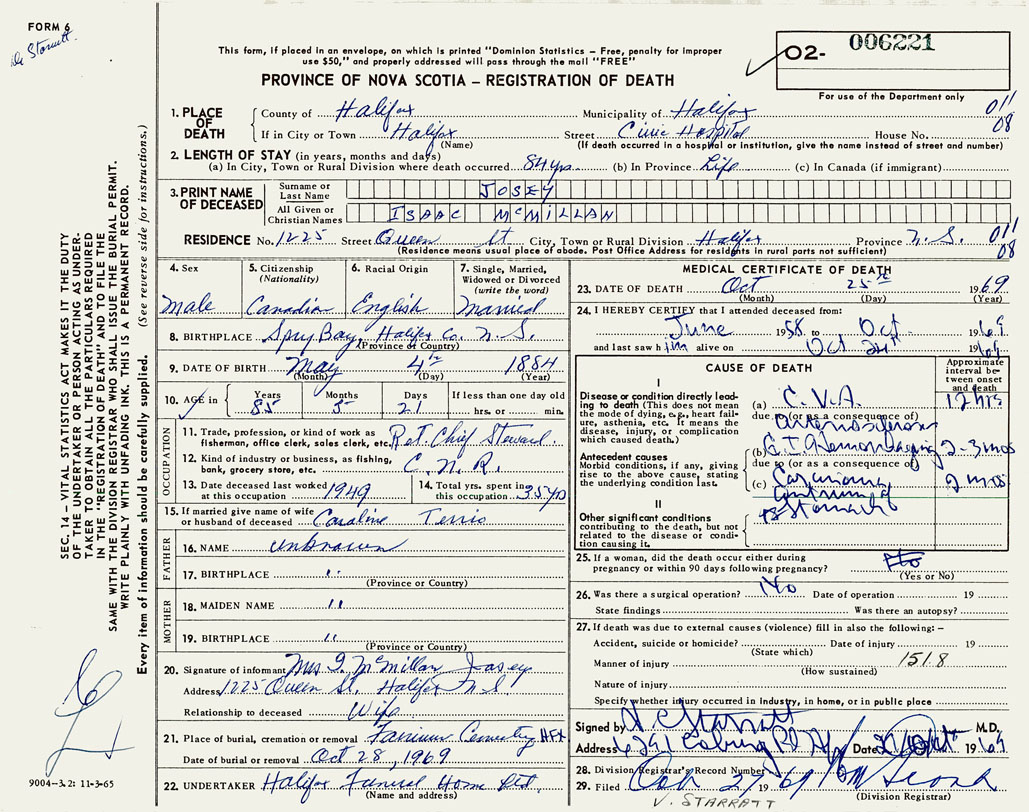 FORM 6
Dr Starratt
This form, if placed in an envelope, on which is printed "Dominion Statistics – Free, penalty for improper
use $50," and properly addressed will pass through the mail "FREE"
PROVINCE OF NOVA SCOTIA – REGISTRATION OF DEATH
O2- 006221
For use of the Department only
1. PLACE OF DEATH
County of Halifax Municipality of Halifax 011
If in City or Town Halifax Street Civic Hospital House No. 08
(Name) (If death occurred in a hospital or institution, give the name instead of street and number)
2. LENGTH OF STAY (in years, months and days)
(a) In City, Town or Rural Division where death occurred 84 yrs. (b) In Province Life (c) In Canada (if immigrant)
3. PRINT NAME OF DECEASED
Surname or Last Name JOSEY
All Given or Christian Names ISAAC McMILLAN
RESIDENCE No. 1225 Street Queen St City, Town or Rural Division Halifax Province N.S. 011
(Residence means usual place of abode. Post Office Address for residents in rural parts not sufficient) 08
4. Sex
Male
5. Citizenship
(Nationality)
Canadian
6. Racial Origin
English
7. Single, Married, Widowed or Divorced
(write the word)
Married
8. BIRTHPLACE Spry Bay, Halifax Co. N.S.
(Province or Country)
9. DATE OF BIRTH May 4th 1884
(Month) (Day) (Year)
10. AGE in Years Months Days If less than one day old
85 5 21 hrs. or min.
OCCUPATION
11. Trade, profession, or kind of work as
fisherman, office clerk, sales clerk, etc. Ret. Chief Steward.
12. Kind of industry or business, as fishing,
bank, grocery store, etc. C.N.R.
13. Date deceased last worked at this occupation 1949
14. Total yrs. spent in this occupation 35 yrs
15. If married give name of wife
or husband of deceased Caroline
FATHER
16. NAME unknown
17. BIRTHPLACE "
(Province or Country)
MOTHER
18. MAIDEN NAME "
19. BIRTHPLACE "
(Province or Country)
20. Signature of informant Mrs I. McMillan Josey
Address 1225 Queen St. Halifax N.S.
Relationship to deceased Wife
21. Place of burial, cremation or removal Cemetery HFX
Date of burial or removal Oct 28, 1969
22. UNDERTAKER Halifax Funeral Home Ltd.
(Name and address)
MEDICAL CERTIFICATE OF DEATH
23. DATE OF DEATH Oct 25th 1969
(Month) (Day) (Year)
24. I HEREBY CERTIFY that I attended deceased from:
June 1958 to Oct 1969
and last saw him alive on Oct 24th 1969
CAUSE OF DEATH
Approximate interval between onset and death
I
Disease or condition directly leading to death (This does not mean
the node of dying, e.g., heart failure, asthenia, etc. It means the
disease, injury, or complication
which caused death.)
(a) C.V.A. 12 hrs
due to (or as a consequence of)
arteriosclerosis
Antecedent causes
Morbid conditions, if any, giving
rise to the above cause, stating
the underlying condition last.
(b) G.I. Hemorrhaging 2-3 mos
due to (or as a consequence of)
(c) Carcinoma 2 mos
stomach
II
Other significant conditions
contributing to the death, but not
related to the disease or condition causing it.
25. If a woman, did the death occur either during
pregnancy or within 90 days following pregnancy?
(Yes or No)
26. Was there a surgical operation? No Date of operation 19
State findings Was there an autopsy?
27. If death was due to external causes (violence) fill in also the following: –
Accident, suicide or homicide? Date of injury 19
(State which)
Manner of injury 1518
(How sustained)
Nature of injury
Specify whether injury occurred in Industry, in home, or in public place
Signed by Starratt M.D.
Address Coburg Date 1969
28. Division Registrar's Record Number
29. Filed Oct 27 1969
(Division Registrar)
V. STARRATT
9004–3.2: 11-3-65
SEC. 14 – VITAL STATISTICS ACT MAKES IT THE DUTY
OF THE UNDERTAKER OR PERSON ACTING AS UNDER-
TAKER TO OBTAIN ALL THE PARTICULARS REQUIRED
IN THE "REGISTRATION OF DEATH" AND TO FILE THE
SAME WITH THE DIVISION REGISTRAR WHO SHALL ISSUE THE BURIAL PERMIT.
WRITE PLAINLY WITH UNFADING INK. THIS IS A PERMANENT RECORD.
Every item of information should be carefully supplied. (See reverse side for instructions.)